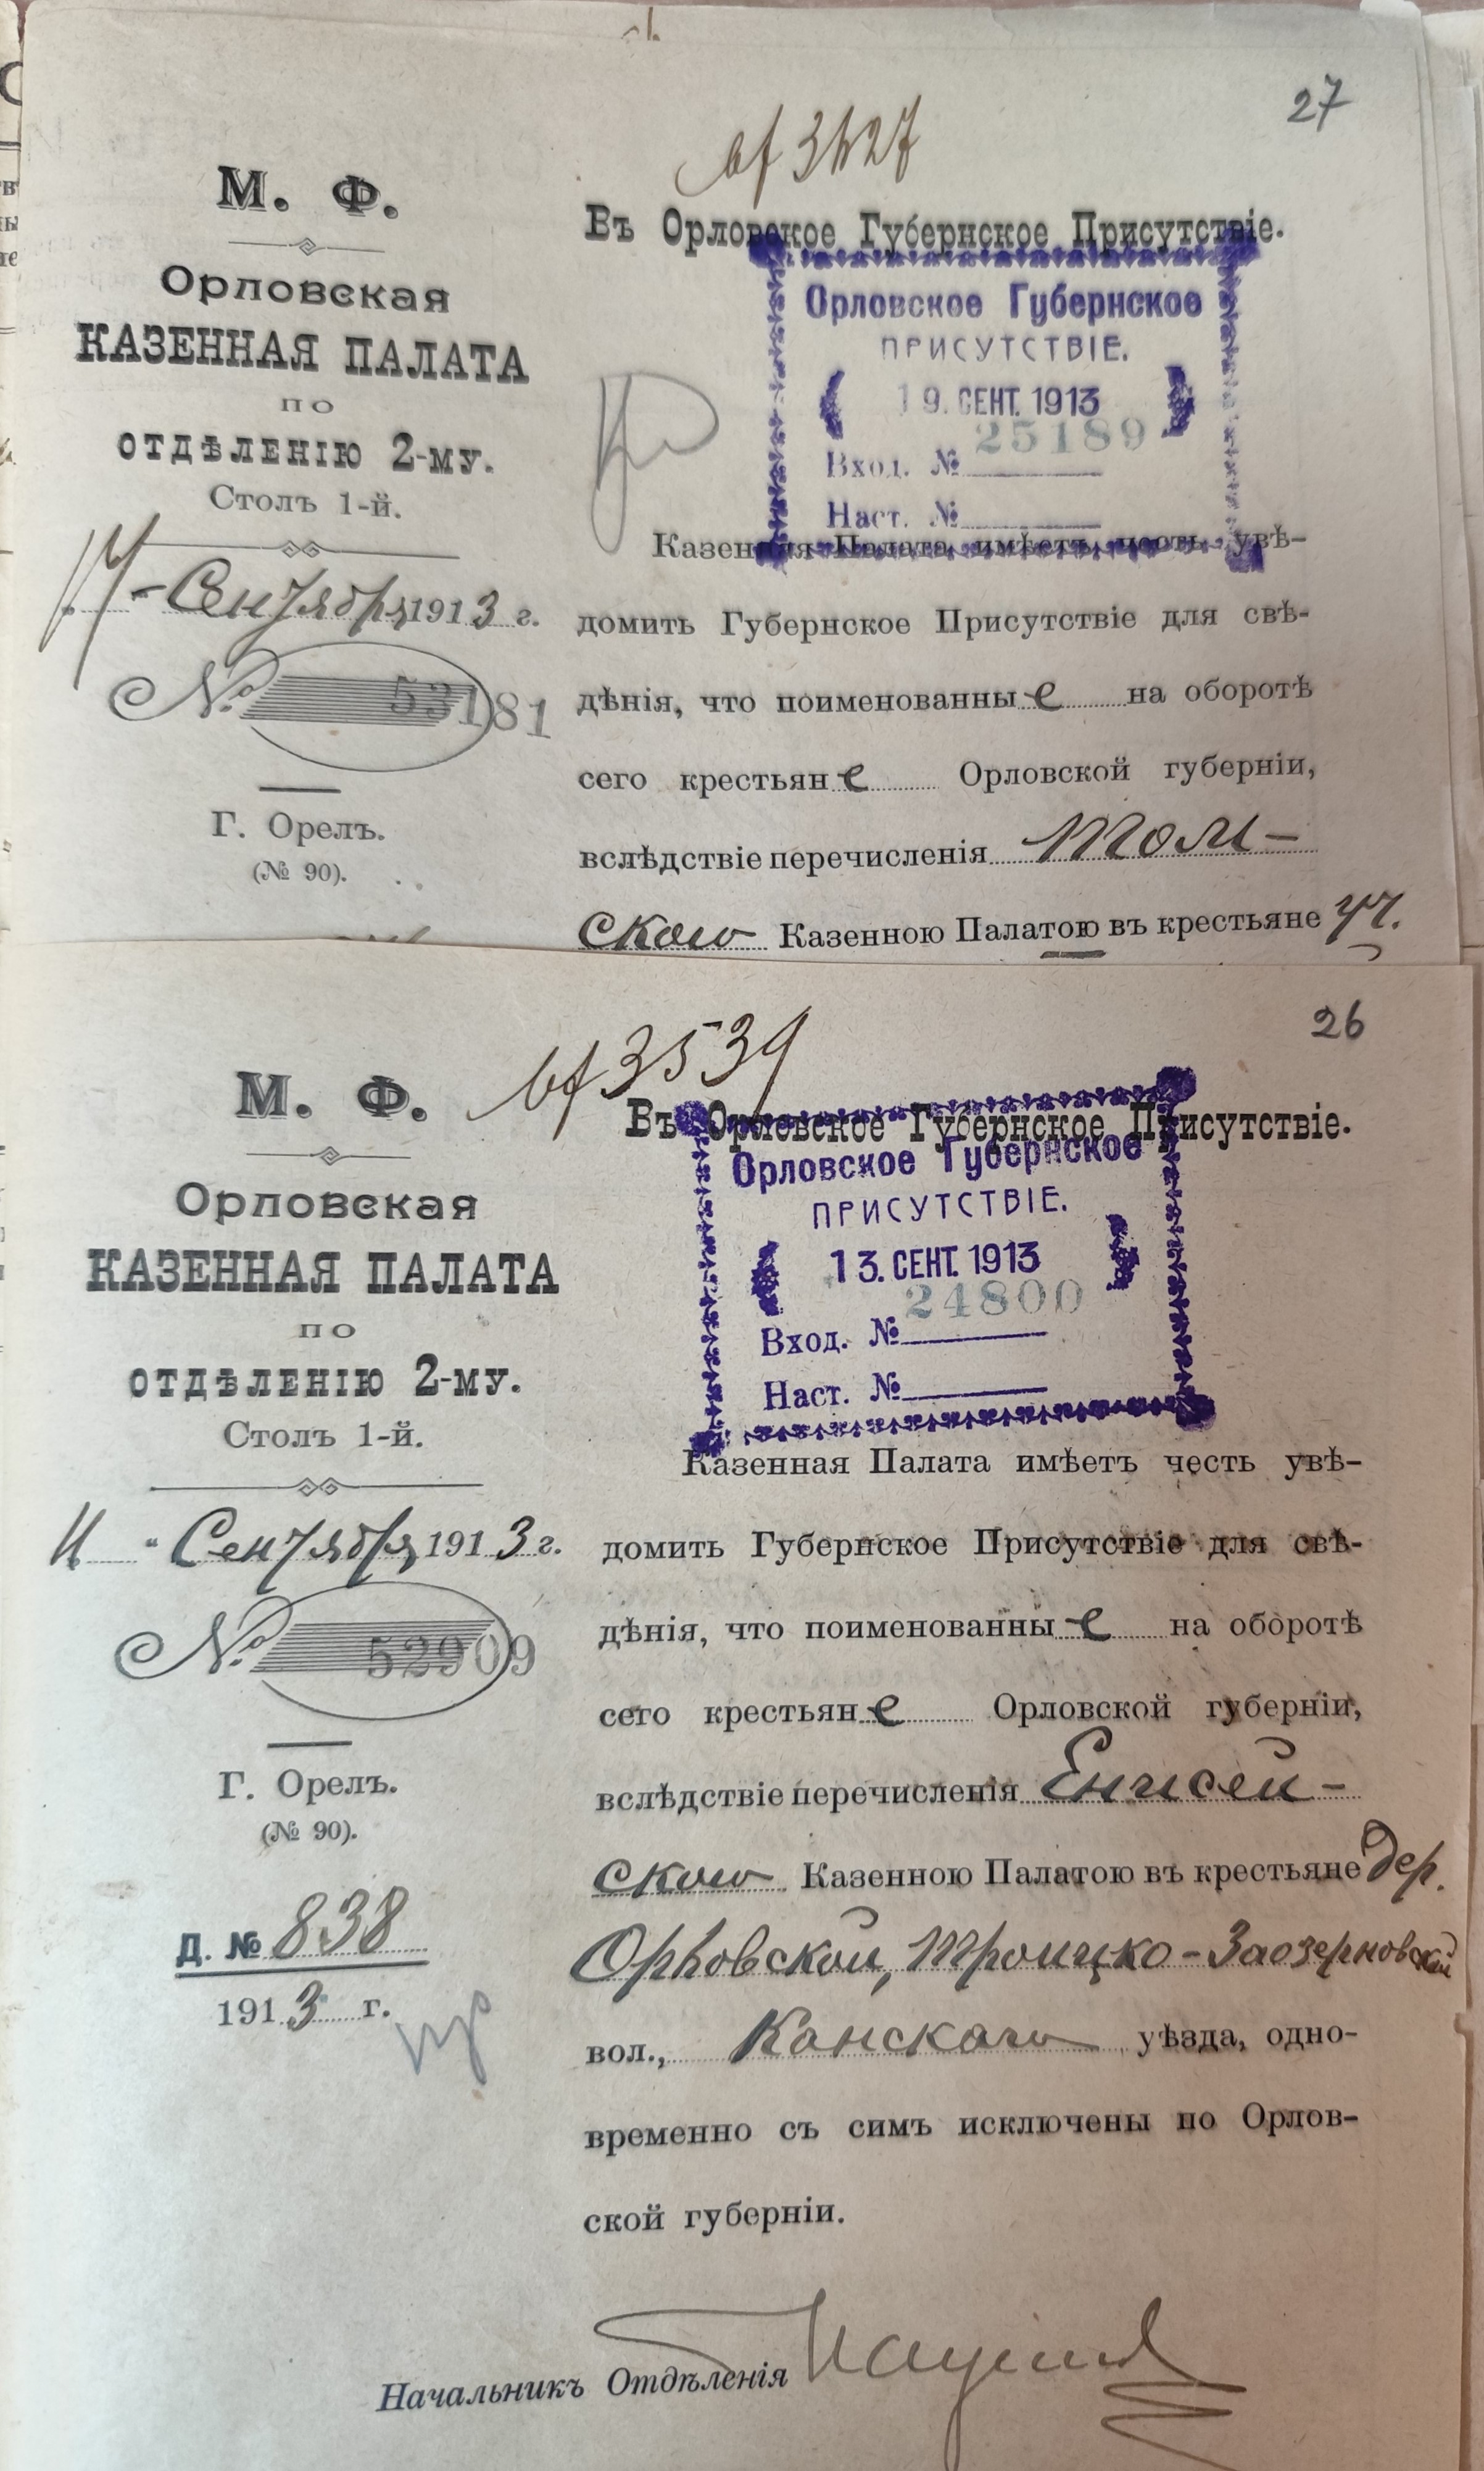 27
М. Ф.
Орловская
КАЗЕННАЯ ПАЛАТА
по
отдѣленію 2-му.
Столъ 1-й.
Сентября 1913 г.
№ 53181
Г. Орелъ.
(№ 90).
Въ Орловское Губернское Присутствіе.
Орловское Губернское
ПРИСУТСТВІЕ.
19. СЕНТ. 1913
25189
Вход. №
Наст. №
Казенная Палата имѣетъ честь увѣ-
домить Губернское Присутствіе для свѣ-
дѣнія, что поименованные на оборотѣ
сего крестьяне Орловской губерніи,
вслѣдствіе перечисленія Том-
ского Казенною Палатою въ крестьяне уч.
26
М. Ф.
Орловская
КАЗЕННАЯ ПАЛАТА
по
отдѣленію 2-му.
Столъ 1-й.
11 Сентября 1913 г.
№ 52909
Г. Орелъ.
(№ 90).
Д. № 838
1913 г.
3539
Въ Орловское Губернское Присутствіе.
Орловское Губернское
ПРИСУТСТВІЕ.
13. СЕНТ. 1913
24800
Вход. №
Наст. №
Казенная Палата имѣетъ честь увѣ-
домить Губернское Присутствіе для свѣ-
дѣнія, что поименованные на оборотѣ
сего крестьяне Орловской губерніи,
вслѣдствіе перечисленія Енисей-
ского Казенною Палатою въ крестьяне дер.
Орловской, Троицко-Заозерновской
вол., Канскаго уѣзда, одно-
временно съ симъ исключены по Орлов-
ской губерніи.
Начальникъ Отдѣленія